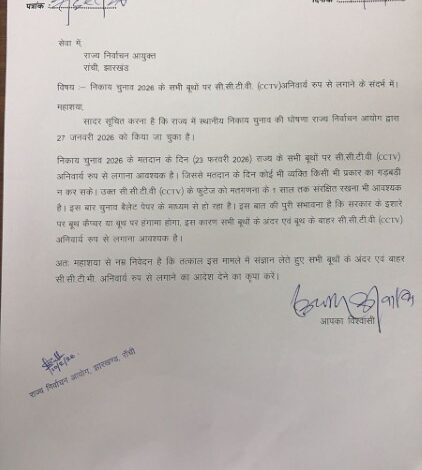 पत्रांक
दिनांक
सेवा में,
राज्य निर्वाचन आयुक्त
रांची, झारखण्ड
विषय :– निकाय चुनाव 2026 के सभी बूथों पर सी.सी.टी.वी. (CCTV)अनिवार्य रुप से लगाने के संदर्भ में।
महाशया,
सादर सूचित करना है कि राज्य में स्थानीय निकाय चुनाव की घोषणा राज्य निर्वाचन आयोग द्वारा
27 जनवरी 2026 को किया जा चुका है।
निकाय चुनाव 2026 के मतदान के दिन (23 फरवरी 2026) राज्य के सभी बूथों पर सी.सी.टी.वी (CCTV)
अनिवार्य रुप से लगाना आवश्यक है। जिससे मतदान के दिन कोई भी व्यक्ति किसी भी प्रकार का गड़बडी
न कर सके। उक्त सी.सी.टी.वी (CCTV) के फुटेज को मतगणना के 1 साल तक संरक्षित रखना भी आवश्यक
है। इस बार चुनाव बैलेट पेपर के माध्यम से हो रहा है। इस बात की पुरी संभावना है कि सरकार के इशारे
पर बूथ कैप्चर या बूथ पर हंगामा होगा, इस कारण सभी बूथों के अंदर एवं बूथ के बाहर सी.सी.टी.वी (CCTV)
अनिवार्य रुप से लगाना आवश्यक है।
अतः महाशया से नम्र निवेदन है कि तत्काल इस मामले में संज्ञान लेते हुए सभी बूथों के अंदर एवं बाहर
सी.सी.टी.भी. अनिवार्य रुप से लगाने का आदेश देने का कृपा करें।
आपका विश्वासी
राज्य निर्वाचन आयोग, झारखण्ड, राँची